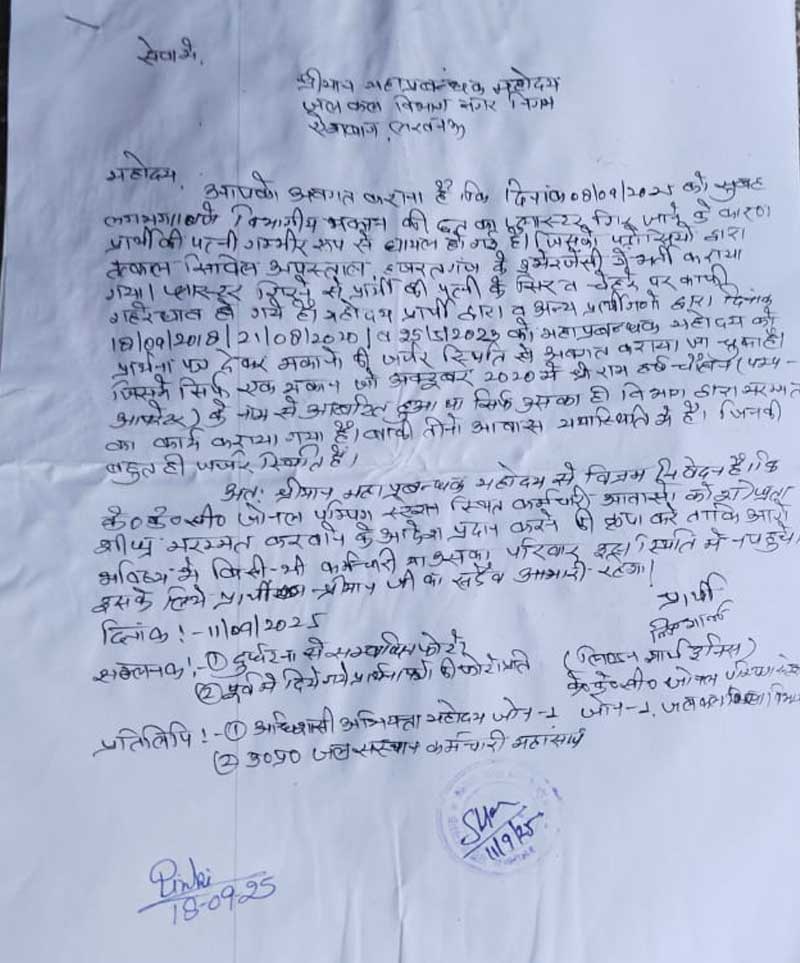 सेवा में,
श्रीमान महाप्रबन्धक महोदय
जल कल विभाग नगर निगम
ऐशबाग, लखनऊ
महोदय,
आपको अवगत कराना है कि दिनांक 08/09/2025 को सुबह
लगभग बजे विभागीय मकान की छत का प्लास्टर गिर जाने के कारण
प्रार्थी की पत्नी गम्भीर रूप से घायल हो गई है। जिसको पड़ोसियों द्वारा
तत्काल सिविल अस्पताल हजरतगंज के इमरजेंसी में भर्ती कराया
गया। प्लास्टर गिरने से प्रार्थी की पत्नी के सिर व चेहरे पर काफी
गहरे घाव हो गये है। महोदय प्रार्थी द्वारा व अन्य द्वारा दिनांक
18/09/2018/21/08/2020/व 25/5/2023 को महाप्रबन्धक महोदय को
प्रार्थना पत्र देकर मकानों की जर्जर स्थिति से अवगत कराया जा चुका है।
जिसमें सिर्फ एक मकान जो अक्टूबर 2020 में श्री राम (पम्प-
आपरेटर) के नाम से आवंटित हुआ था सिर्फ उसका ही विभाग द्वारा मरम्मत
का कार्य कराया गया है। बाकी तीनो आवास यथास्थिति में है। जिनकी
बहुत ही जर्जर स्थिति है।
अतः श्रीमान महाप्रबन्धक महोदय से विनम्र निवेदन है। कि
के०के०सी० जोनल पम्पिंग स्टेशन स्थित कर्मचारी आवासो को
शीघ्र मरम्मत करवाने के आदेश प्रदान करने की कृपा करे ताकि आगे
भविष्य में किसी भी कर्मचारी या उसका परिवार इस स्थिति में न पहुंचे।
इसके लिये प्रार्थी श्रीमान जी का सदैव आभारी रहेगा।
दिनांक :- 11/09/2025
प्रार्थी
संलग्नक :- (1) दुर्घटना से सम्बन्धित फोटो
(2) पूर्व में दिये गये प्रार्थना पत्रों की फोटो प्रति
के०के०सी० जोनल
जोन-1, जलकल विभाग
प्रतिलिपि :- (1) अधिशासी अभियन्ता महोदय जोन-1
(2) उ०प्र० जल संस्थान कर्मचारी महासंघ
11/9/25
Pinki
18-09-25